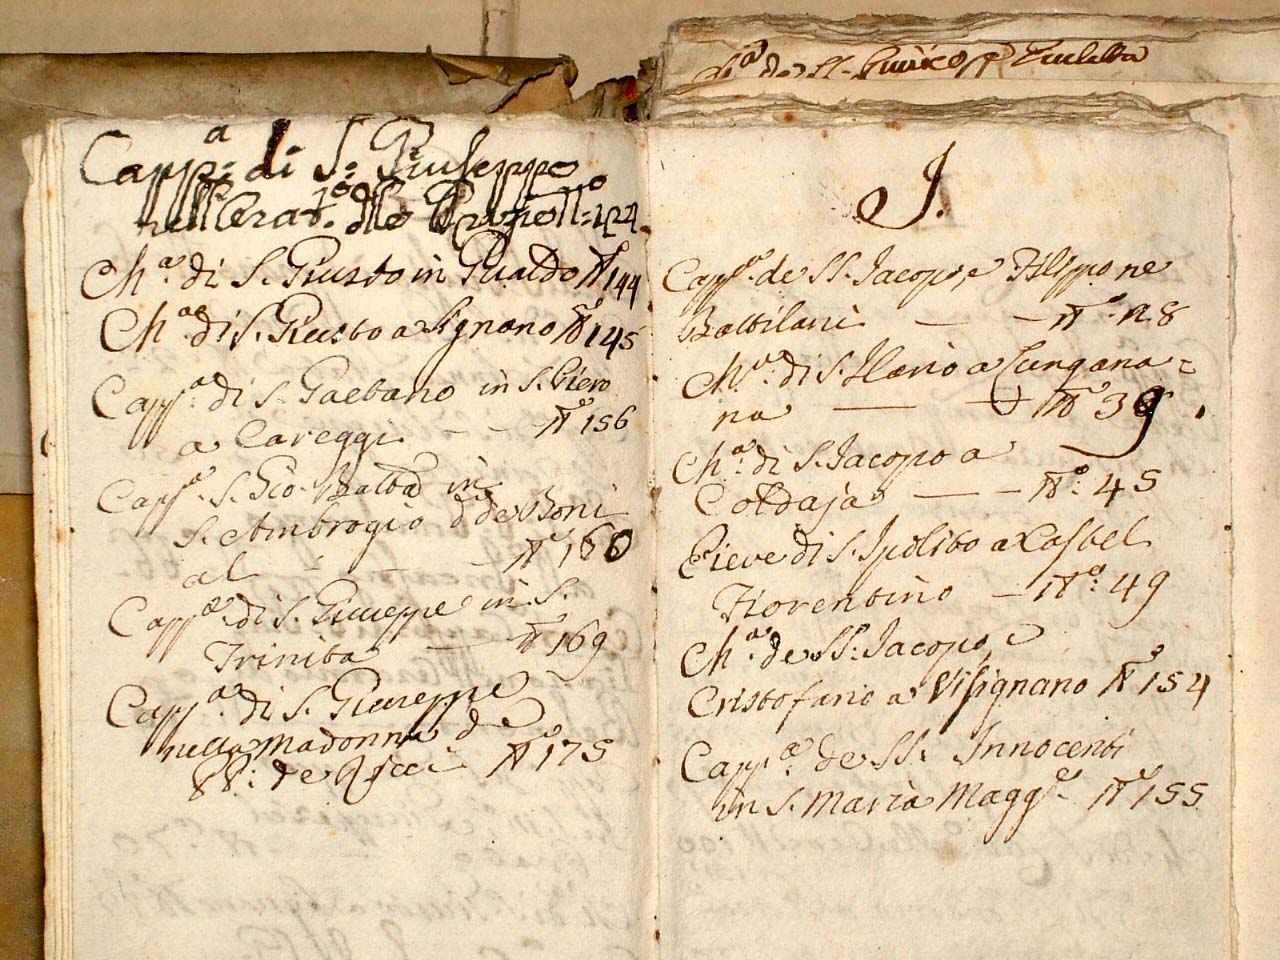 Capp.ª di S. Giuseppe
nell'Orat.º delle Nº 124
Ch.ª di S. Giusto in Gualdo Nº 144
Ch.ª di S. Giusto a Signano Nº 145
Capp.ª di S. Gaetano in S. Piero
a Careggi — — Nº 156
Capp.ª S. Gio. Batta in
S. Ambrogio d. de Boni
al — — — Nº 160
Capp.ª di S. Giuseppe in S.
Trinita — Nº 169
Capp.ª di S. Giuseppe
nella Madonna de
de Ricci Nº 175
S.ª de SS. Quirico e Giulitta
J.
Capp.ª de SS. Jacopo, e Filippo ne
Battilani — — Nº 28
Ch.ª di S. Ilario a Lungana=
na — Nº 39.
Ch.ª di S. Jacopo a
Coldaja — — Nº 45
Pieve di S. Ipolito a Castel
Fiorentino — Nº 49
Ch.ª de SS. Jacopo, e
Cristofano a Visignano Nº 154
Capp.ª de SS. Innocenti
in S. Maria Magg.e Nº 155